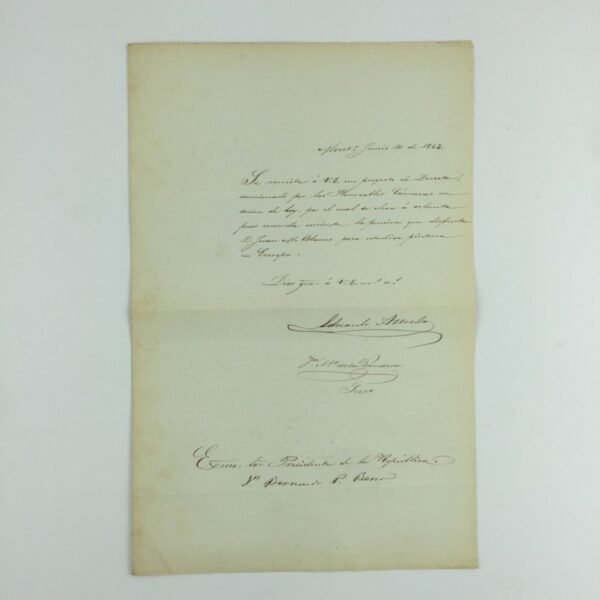 Montº Junio 10 de 1863.
Se remite á V.E. un proyecto de Decreto
sancionado por las Honorables Cámaras en
sesion de hoy, por el cual se eleva á ochenta
pesos moneda corriente, la pension que disfruta
D. Juan M. Blanes para estudiar pintura
en Europa.
Dios gue. á V.E. ms. as.
Eduardo Acevedo
Jn. Ma. de la
Secro
Exmo. Sor. Presidente de la República.
Dn Bernardo P. Berro.